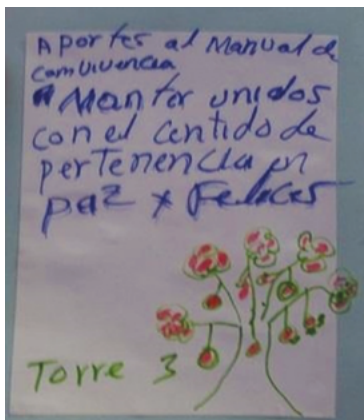 Aportes al Manual de
Convivencia
"Manter unidos
con el centido de
pertenencia en
paz y Felices
Torre 3